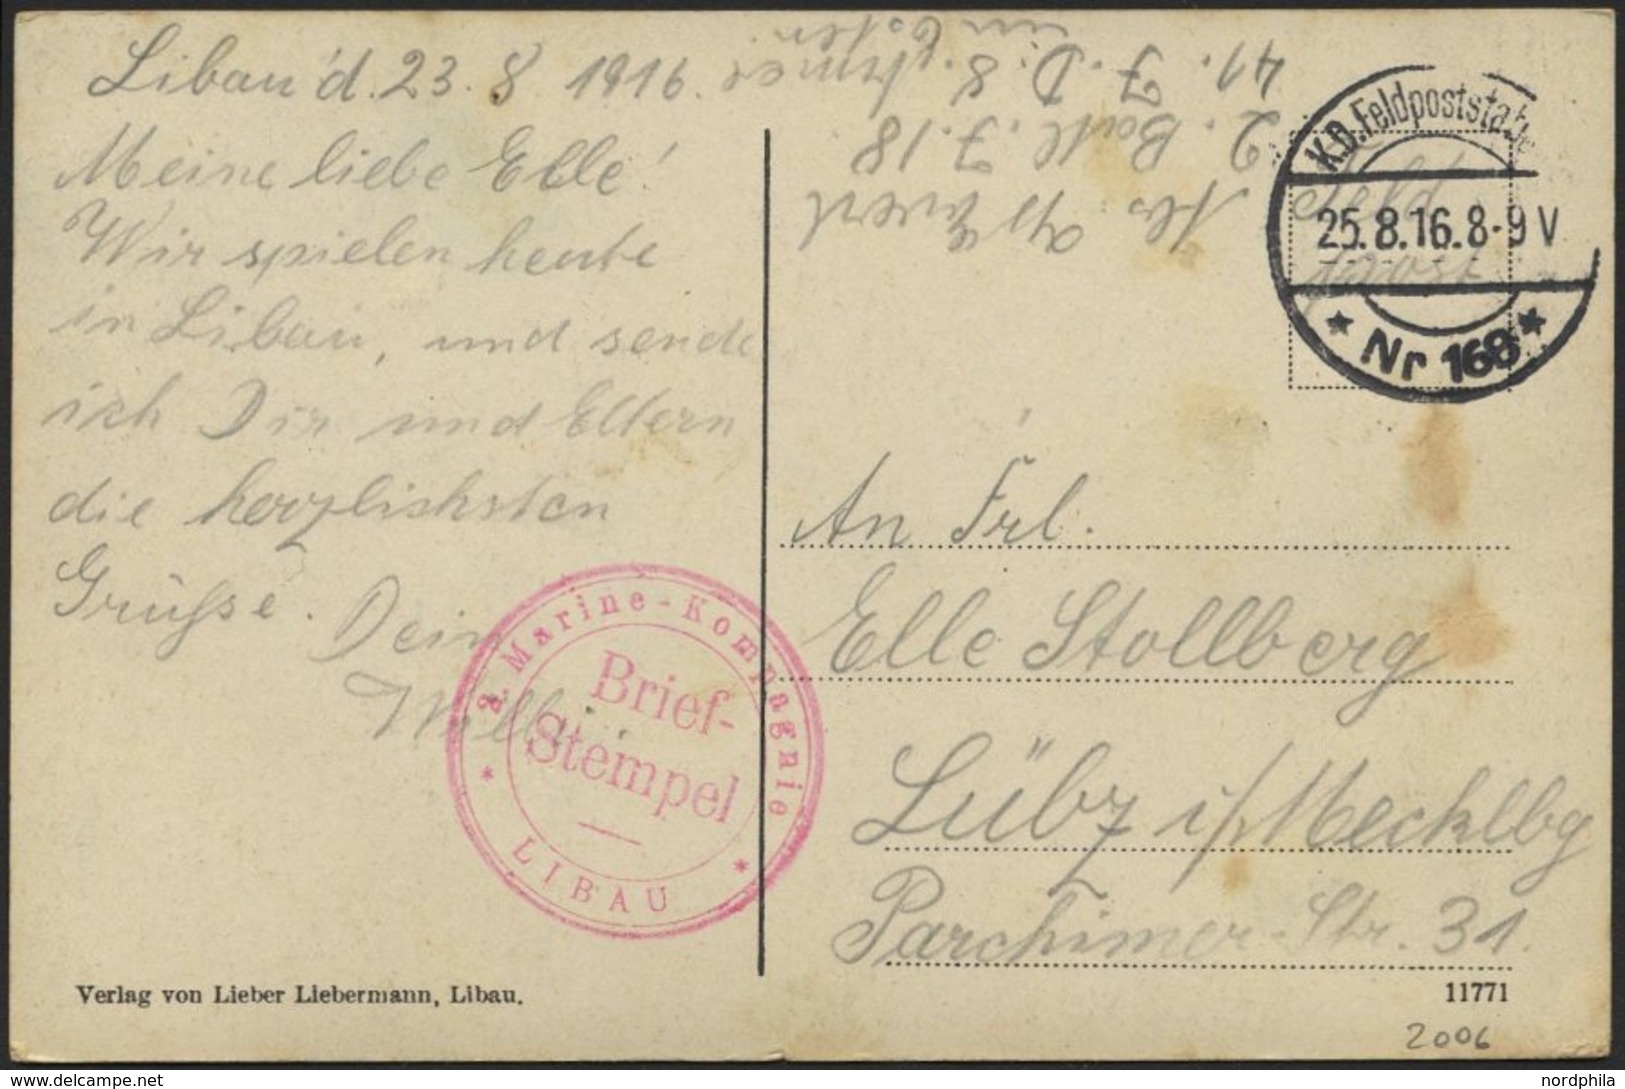 Libau d. 23. 8. 1916.
Meine liebe Elle!
Wir spielen heute
in Libau, und sende
ich Dir und Eltern
die herzlichsten
Grüsse. Dein
Willi.
2. Batl. J. 18.
41. J. D. 8. Armee
im Osten.
K.D. Feldpoststa
25.8.16.8-9 V
* Nr 168 *
Feld
post
An Frl.
Elle Stollberg
Lübz i/Mecklbg
Parchimer-Str. 31.
Marine-Kompagnie
Brief-
Stempel
* LIBAU *
Verlag von Lieber Liebermann, Libau.
11771
2006
nordphila